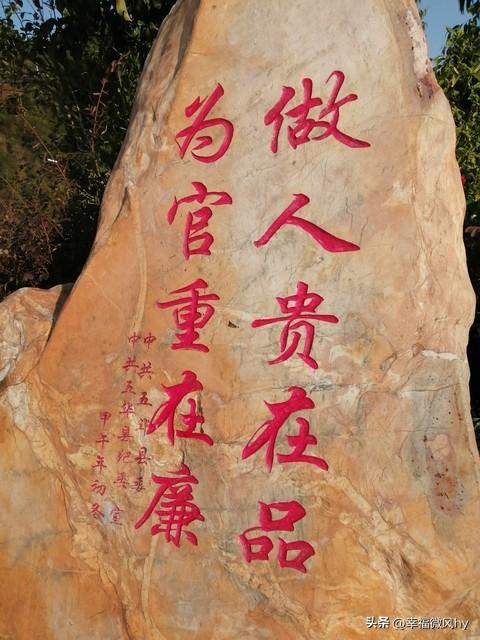 做人贵在品
为官重在廉
中共五华县委
中共五华县纪委 宣
甲午年初冬
头条 @幸福微风hy